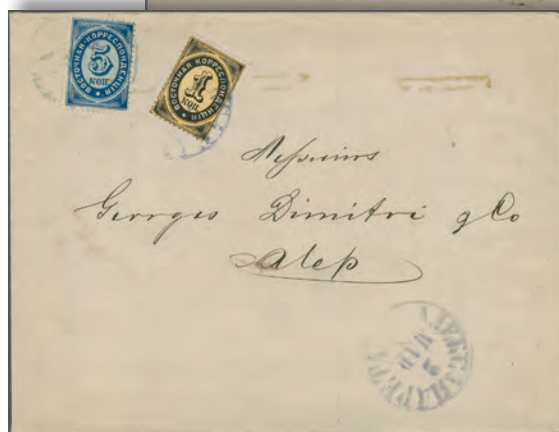 5
КОП
ВОСТОЧНАЯ КОРРЕСПОНДЕНЦІЯ
1
КОП
ВОСТОЧНАЯ КОРРЕСПОНДЕНЦІЯ
Messieurs
Georges Dimitri & Co
Alep